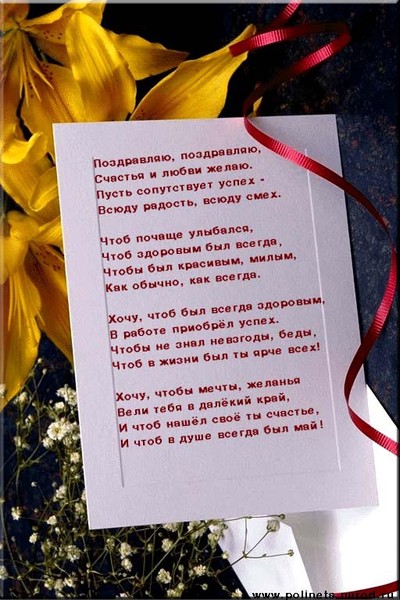 Поздравляю, поздравляю,
Счастья и любви желаю.
Пусть сопутствует успех -
Всюду радость, всюду смех.
Чтоб почаще улыбался,
Чтоб здоровым был всегда,
Чтобы был красивым, милым,
Как обычно, как всегда.
Хочу, чтоб был всегда здоровым,
В работе приобрёл успех.
Чтобы не знал невзгоды, беды,
Чтоб в жизни был ты ярче всех!
Хочу, чтобы мечты, желанья
Вели тебя в далёкий край,
И чтоб нашёл своё ты счастье,
И чтоб в душе всегда был май!
www.polinets.narod.ru